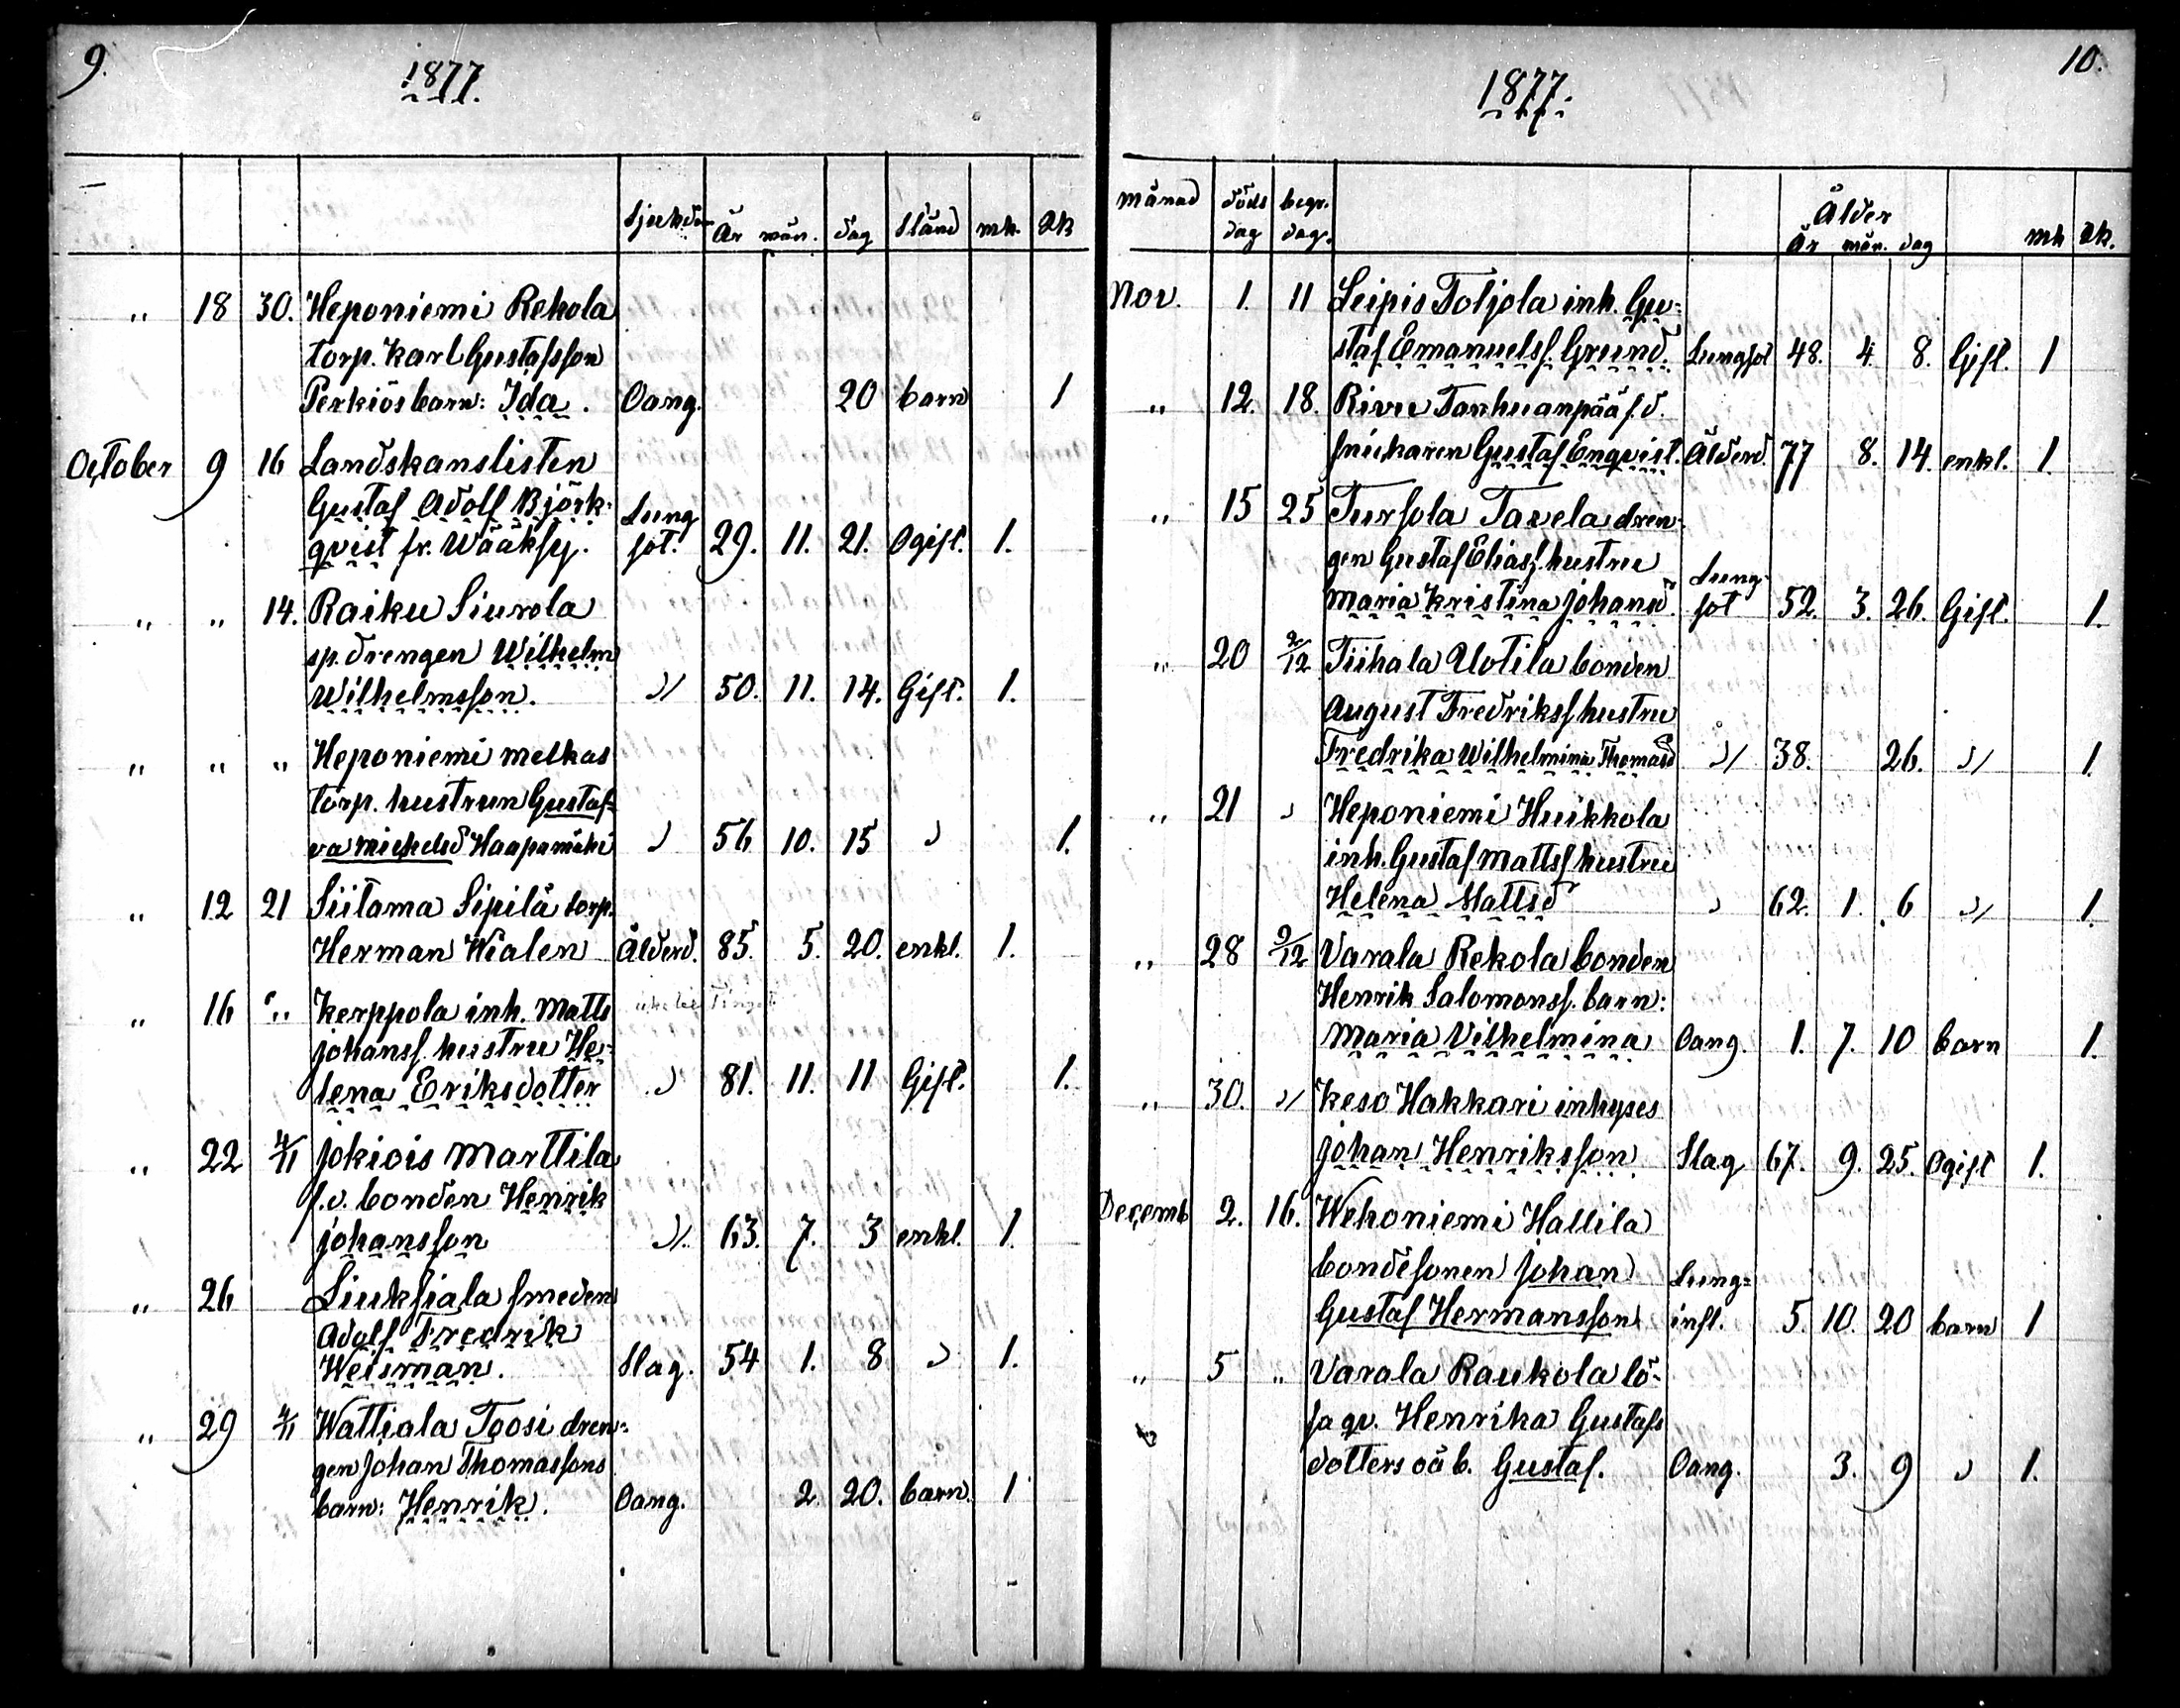 9.
1877.
Sjukdom År mån. dag Stånd mk. Qk
" 18 30. Heponiemi Rekola
torp. Karl Gustafsson
Perkiös barn: Ida. Oang. 20 barn 1
October 9 16 Landskanslisten
Gustaf Adolf Björk-
qvist fr. Wääksy. Lung sot. 29. 11. 21. Ogift. 1.
" " 14. Raiku Siurola
sp. drengen Wilhelm
Wilhelmsson. " 50. 11. 14. Gift. 1.
" " " Heponiemi Melkas
torp. hustrun Gustaf-
va Michelsd Haapamäki " 56 10. 15 " 1.
" 12 21 Siitama Sipilä torp.
Herman Wialen Ålderd. 85. 5. 20. enkl. 1.
" 16 " Kerppola inh. Matts
Johanss. hustru He-
lena Eriksdotter " 81. 11. 11 Gift. 1.
" 22 4/11 Jokiois Marttila
f.d. bonden Henrik
Johansson " 63. 7. 3 enkl. 1.
" 26 Liuksiala smeden
Adolf Fredrik
Weisman. Slag. 54 1. 8 " 1.
" 29 4/11 Wattiala Toosi dren-
gen Johan Thomassons
barn: Henrik. Oang. 2. 20. barn. 1
10.
1877.
Månad döds dag begr. dag. Ålder År mån. dag mk Qk.
Nov. 1. 11 Leipis Toljola inh. Gu-
staf Emanuelss. Grund. Lungsot 48. 4. 8. Gift. 1
" 12. 18. Rivu Tanhuanpää f.d.
snickaren Gustaf Enqvist. Ålderd. 77 8. 14. enkl. 1.
" 15 25 Tursola Tavela dren-
gen Gustaf Eliass. hustru
Maria Kristina Johansd. Lung- sot 52. 3. 26. Gift. 1.
" 20 2/12 Tiihala Uotila bonden
August Fredrikss hustru
Fredrika Wilhelmina Thomasd " 38. 26. " 1.
" 21 " Heponiemi Huikkola
inh. Gustaf Mattss hustru
Helena Mattsd " 62. 1. 6 " 1.
" 28 9/12 Varala Rekola bonden
Henrik Salomonss. barn:
Maria Vilhelmina Oang. 1. 7. 10 barn 1.
" 30. " Keso Hakkari inhyses
Johan Henriksson Slag 67. 9. 25. Ogift 1.
Decemb 2. 16. Wehoniemi Hallila
bondesonen Johan
Gustaf Hermansson Lung- infl. 5. 10. 20 barn 1
" 5 " Varala Raukola lö-
sa qv. Henrika Gustafs
dotters oä b. Gustaf. Oang. 3. 9 " 1.